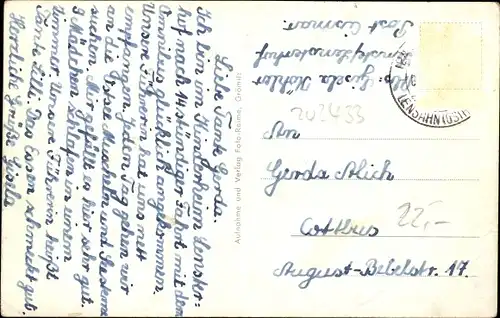 Liebe Tante Gerda.
Ich bin im Kinderheim Lenster-
hof nach 14 stündiger Fahrt mit dem
Omnibus glücklich angekommen.
Unsre Führerin hat uns nett
empfangen. Jeden Tag gehen wir
an die See Muscheln und Seesterne
suchen. Mir gefällt es hier sehr gut.
3 Mädchen schlafen in einem
Zimmer. Unsere Führerin heißt
Tante Lilli. Das Essen schmekt gut.
Herzliche Grüße Gisela
Aufnahme und Verlag Foto-Reime, Grömitz
Abs. Gisela Köhler
Post Cismar
LENSAHN (OSTH
202433
An
Gerda Alich
22,-
Cottbus
August-Bebelstr. 17.